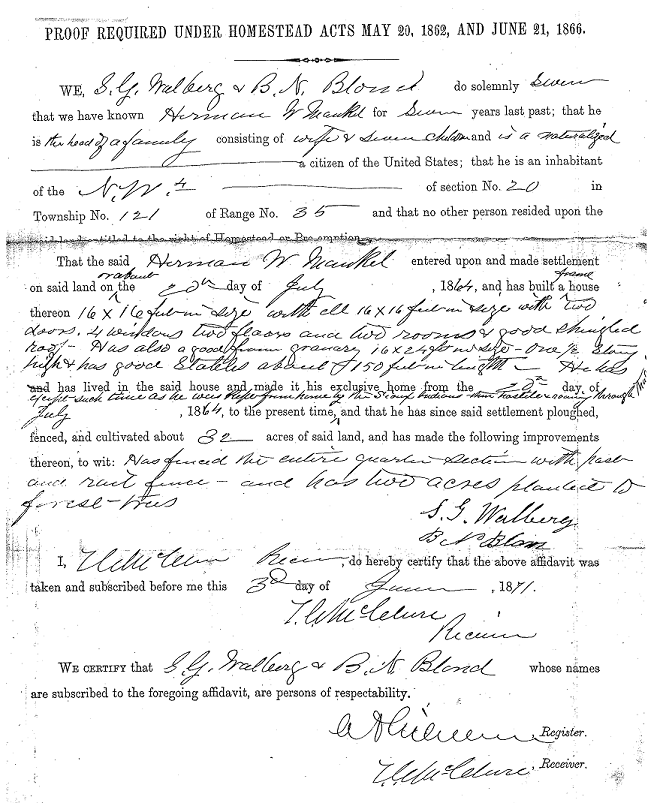 PROOF REQUIRED UNDER HOMESTEAD ACTS MAY 20, 1862, AND JUNE 21, 1866.
WE, S. G. Walberg & B. N. Blond do solemnly Swear
that we have known Herman W Mankel for Seven years last past; that he
is the head of a family consisting of wife & seven children and is a naturalized
a citizen of the United States; that he is an inhabitant
of the N.W. 4 of section No. 20 in
Township No. 121 of Range No. 35 and that no other person resided upon the
said land entitled to the right of Homestead or Pre-emption.
That the said Herman W Mankel entered upon and made settlement
or about frame
on said land on the 20th day of July, 1864, and has built a house
thereon 16 x 16 feet in size with ell 16 x 16 feet in size with two
doors. 4 windows two floors and two rooms & good shingled
roof - Has also a good frame granary 16 x 24 ft in size - one ½ story
high & has good Stables about 150 feet in length - He has
and has lived in the said house and made it his exclusive home from the 20th day of
except such time as he was kept from home by the Sioux Indians through that
July, 1864, to the present time, and that he has since said settlement ploughed,
fenced, and cultivated about 32 acres of said land, and has made the following improvements
thereon, to wit: Has fenced the entire quarter section with post
and rail fence - and has two acres planted to
forest-trees
S. G. Walberg
B N Blom
I, T. C. McClure Receiver, do hereby certify that the above affidavit was
taken and subscribed before me this 3d day of June, 1871.
T. C. McClure
Receiver
WE CERTIFY that S. G. Walberg & B. N Blond whose names
are subscribed to the foregoing affidavit, are persons of respectability.
Register.
T. C. McClure, Receiver.